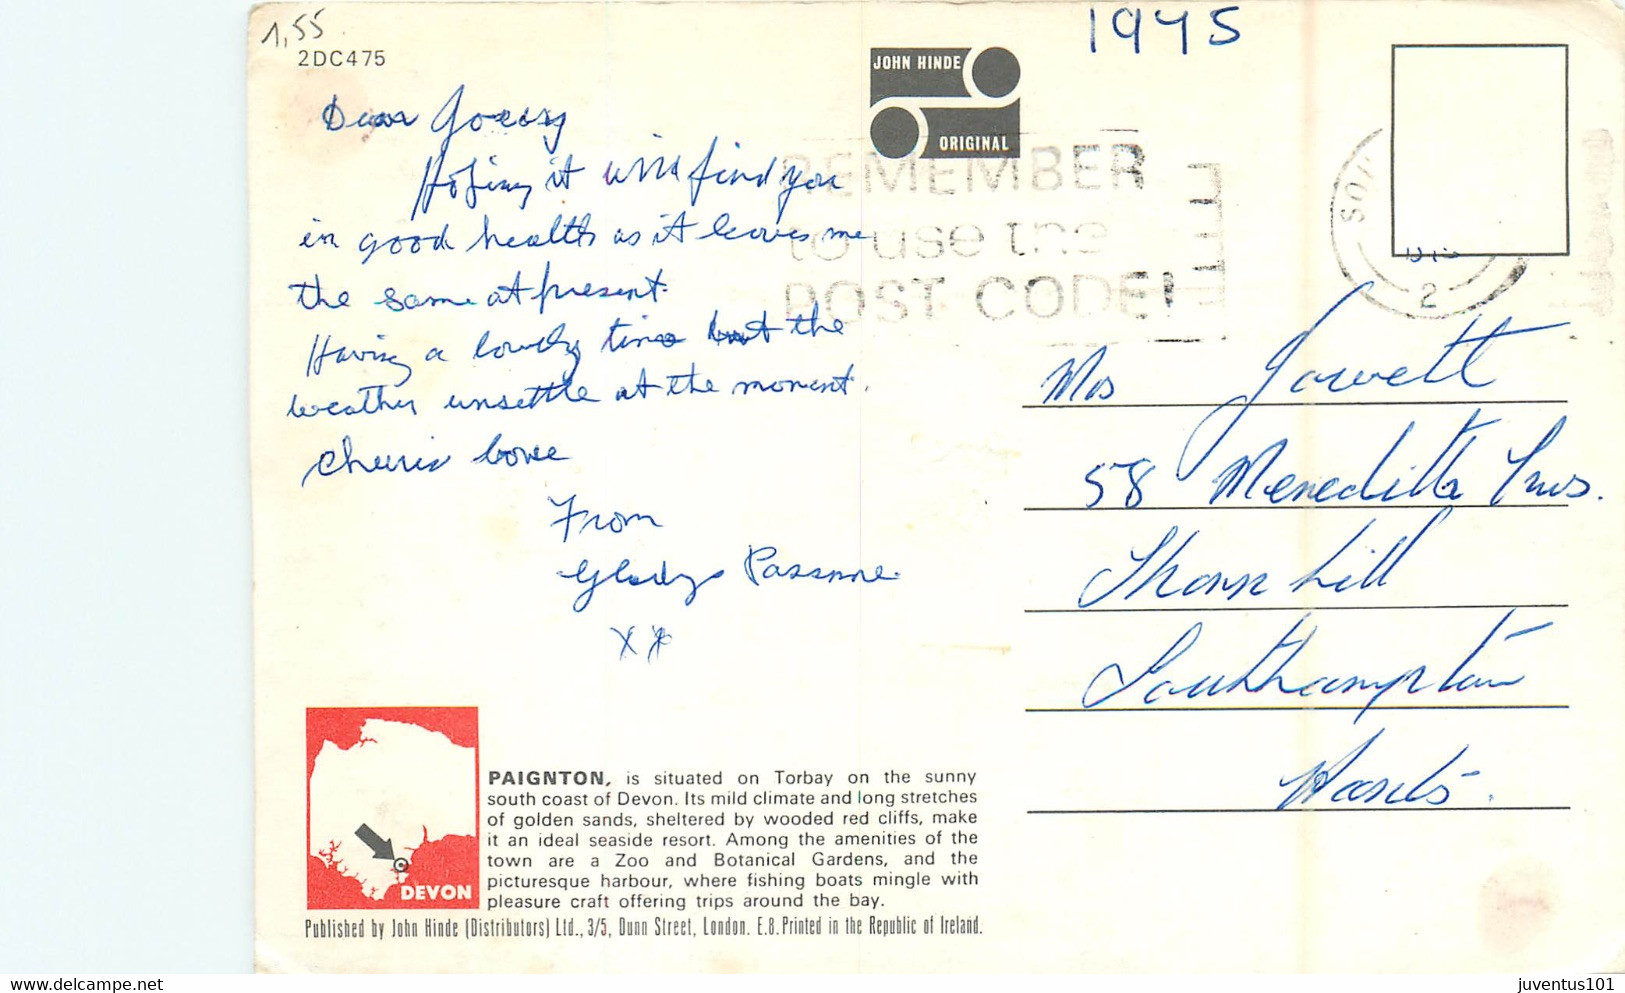 1,55
2DC475
1975
JOHN HINDE
ORIGINAL
REMEMBER
to use the
POST CODE!
2
Dear
Hoping it will find you
in good health as it leaves me
the same at present.
Having a lovely time but the
weather unsettle at the moment.
cheerio love
From
Gladys Passmore
x x
Mrs Jowett
58 Meredith
Thornhill
Southampton
Hants.
DEVON
PAIGNTON, is situated on Torbay on the sunny
south coast of Devon. Its mild climate and long stretches
of golden sands, sheltered by wooded red cliffs, make
it an ideal seaside resort. Among the amenities of the
town are a Zoo and Botanical Gardens, and the
picturesque harbour, where fishing boats mingle with
pleasure craft offering trips around the bay.
Published by John Hinde (Distributors) Ltd., 3/5, Dunn Street, London. E.8. Printed in the Republic of Ireland.
www.delcampe.net
juventus101